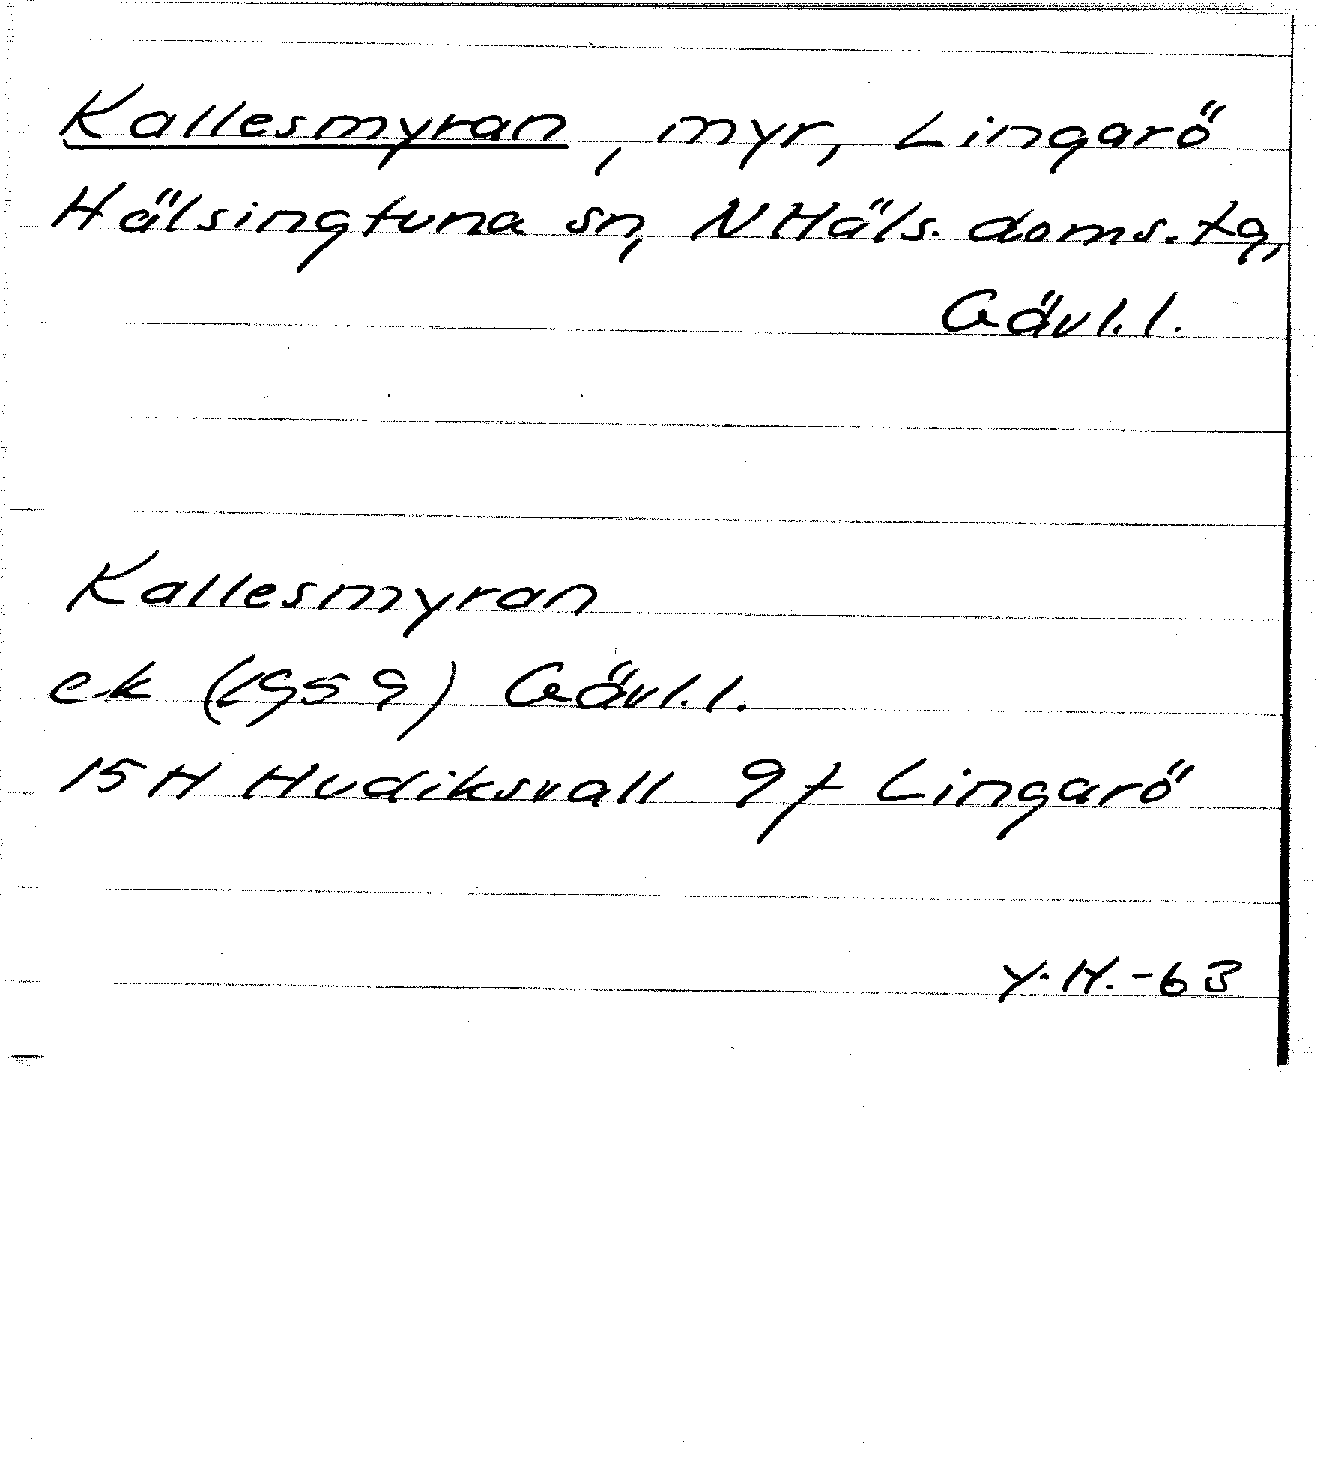 Kallesmyran, myr, Lingarö
Hälsingtuna sn, N Häls. doms. tg,
Gävl. l.
Kallesmyran
ek (1959) Gävl. l.
15 H Hudiksvall 9f Lingarö
Y. H. -63